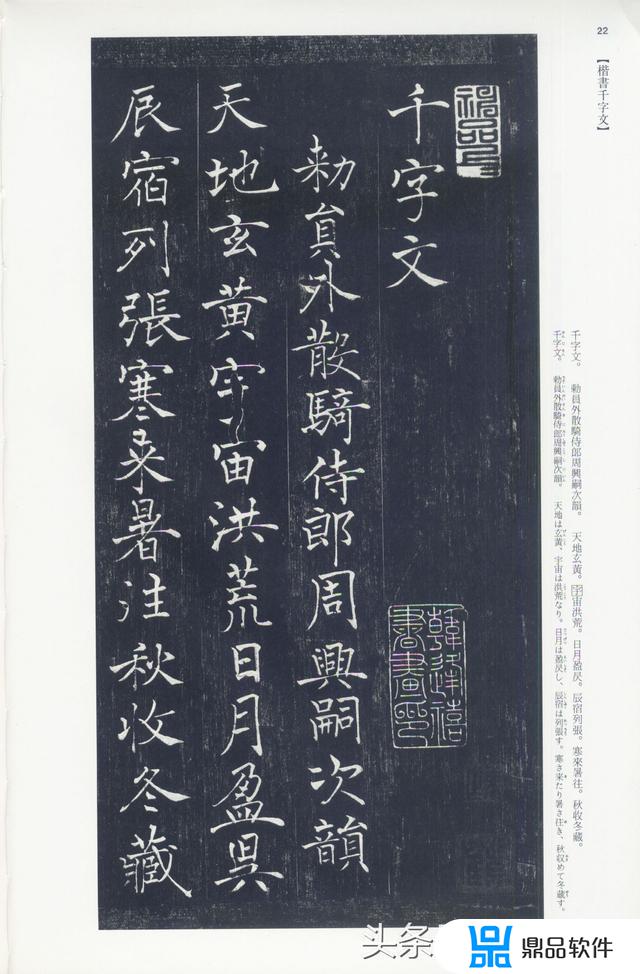 22
【楷書千字文】
千字文。 勅員外散騎侍郎周興嗣次韻。 天地玄黄。宇宙洪荒。日月盈昃。辰宿列張。寒來暑往。秋收冬藏。
千字文。 勅員外散騎侍郎周興嗣次韻。 天地は玄黄、宇宙は洪荒なり。日月は盈昃し、辰宿は列張す。寒さ来たり暑さ往き、秋収めて冬蔵す。
千字文
韓逢禧
書畫印
勅員外散騎侍郎周興嗣次韻
天地玄黄宇宙洪荒日月盈昃
辰宿列張寒来暑往秋收冬藏
头条
鼎品软件